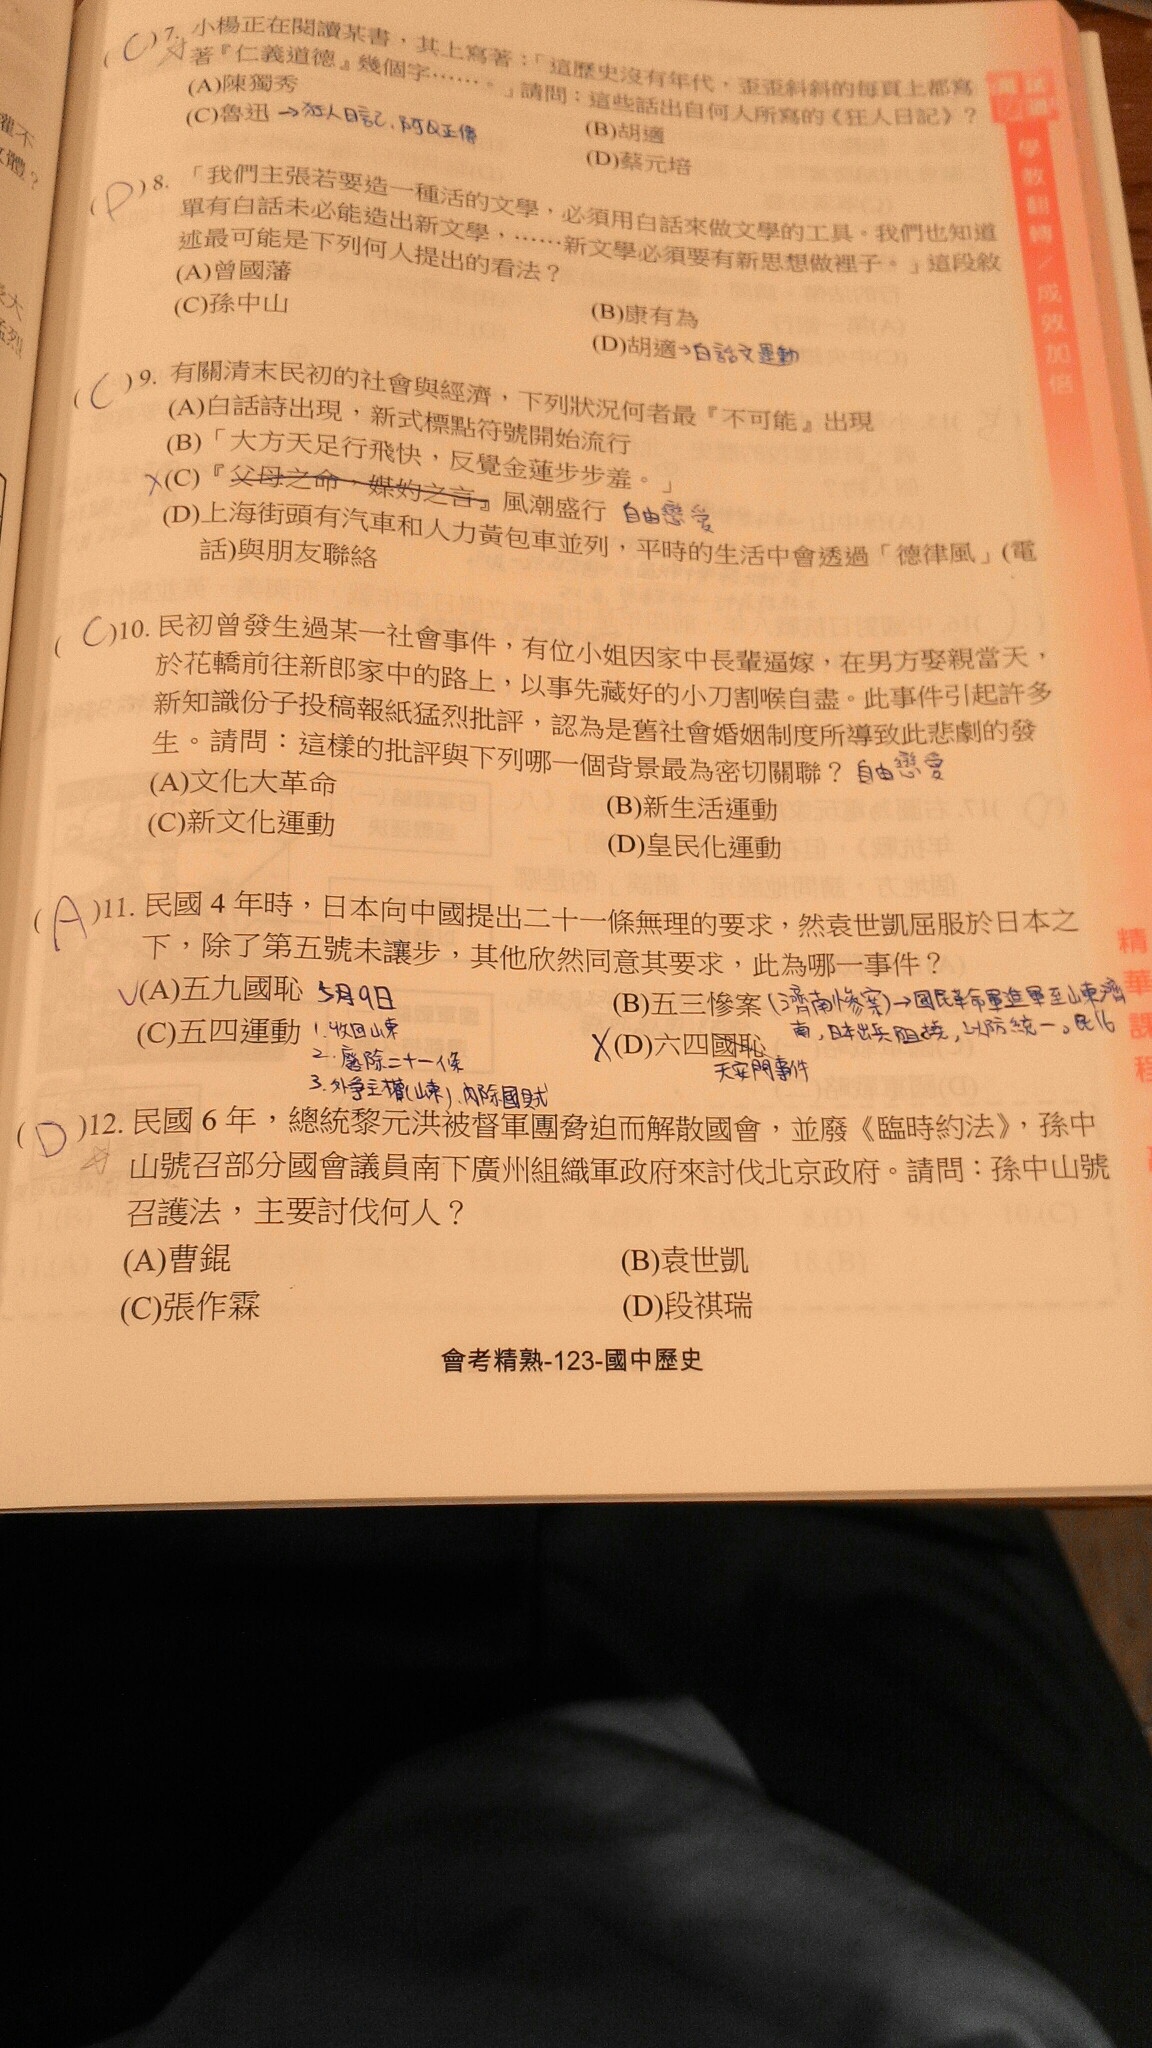 (C)7. 小楊正在閱讀某書,其上寫著:「這歷史沒有年代,歪歪斜斜的每頁上都寫
著『仁義道德』幾個字……。」請問:這些話出自何人所寫的《狂人日記》?
(A)陳獨秀
(B)胡適
(C)魯迅 →狂人日記、阿Q正傳
(D)蔡元培
(D)8. 「我們主張若要造一種活的文學,必須用白話來做文學的工具。我們也知道
單有白話未必能造出新文學,……新文學必須要有新思想做裡子。」這段敘
述最可能是下列何人提出的看法?
(A)曾國藩
(B)康有為
(C)孫中山
(D)胡適→白話文運動
(C)9. 有關清末民初的社會與經濟,下列狀況何者最『不可能』出現
(A)白話詩出現,新式標點符號開始流行
(B)「大方天足行飛快,反覺金蓮步步羞。」
X(C)『父母之命,媒妁之言』風潮盛行 自由戀愛
(D)上海街頭有汽車和人力黃包車並列,平時的生活中會透過「德律風」(電
話)與朋友聯絡
(C)10. 民初曾發生過某一社會事件,有位小姐因家中長輩逼嫁,在男方娶親當天,
於花轎前往新郎家中的路上,以事先藏好的小刀割喉自盡。此事件引起許多
新知識份子投稿報紙猛烈批評,認為是舊社會婚姻制度所導致此悲劇的發
生。請問:這樣的批評與下列哪一個背景最為密切關聯? 自由戀愛
(A)文化大革命
(B)新生活運動
(C)新文化運動
(D)皇民化運動
(A)11. 民國 4 年時,日本向中國提出二十一條無理的要求,然袁世凱屈服於日本之
下,除了第五號未讓步,其他欣然同意其要求,此為哪一事件?
✓(A)五九國恥 5月9日
(B)五三慘案(濟南慘案)→國民革命軍進軍至山東濟
南,日本出兵阻撓,以防統一。民16
(C)五四運動 1.收回山東
2.廢除二十一條
3.外爭主權(山東)、內除國賊
X(D)六四國恥
天安門事件
(D)12. 民國 6 年,總統黎元洪被督軍團脅迫而解散國會,並廢《臨時約法》,孫中
山號召部分國會議員南下廣州組織軍政府來討伐北京政府。請問:孫中山號
召護法,主要討伐何人?
(A)曹錕
(B)袁世凱
(C)張作霖
(D)段祺瑞
會考精熟-123-國中歷史
學教翻轉/成效加倍
精華課程